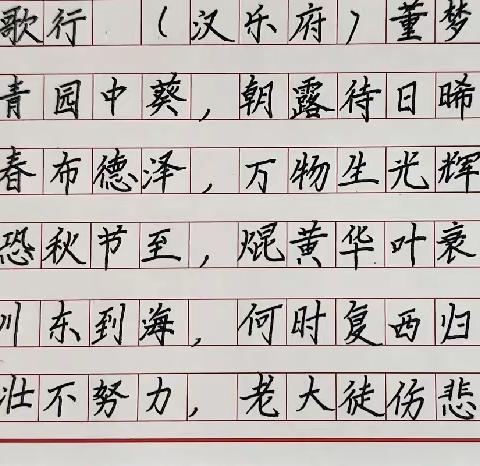 歌行（汉乐府）董梦
青园中葵，朝露待日晞
春布德泽，万物生光辉
恐秋节至，焜黄华叶衰
川东到海，何时复西归
壮不努力，老大徒伤悲